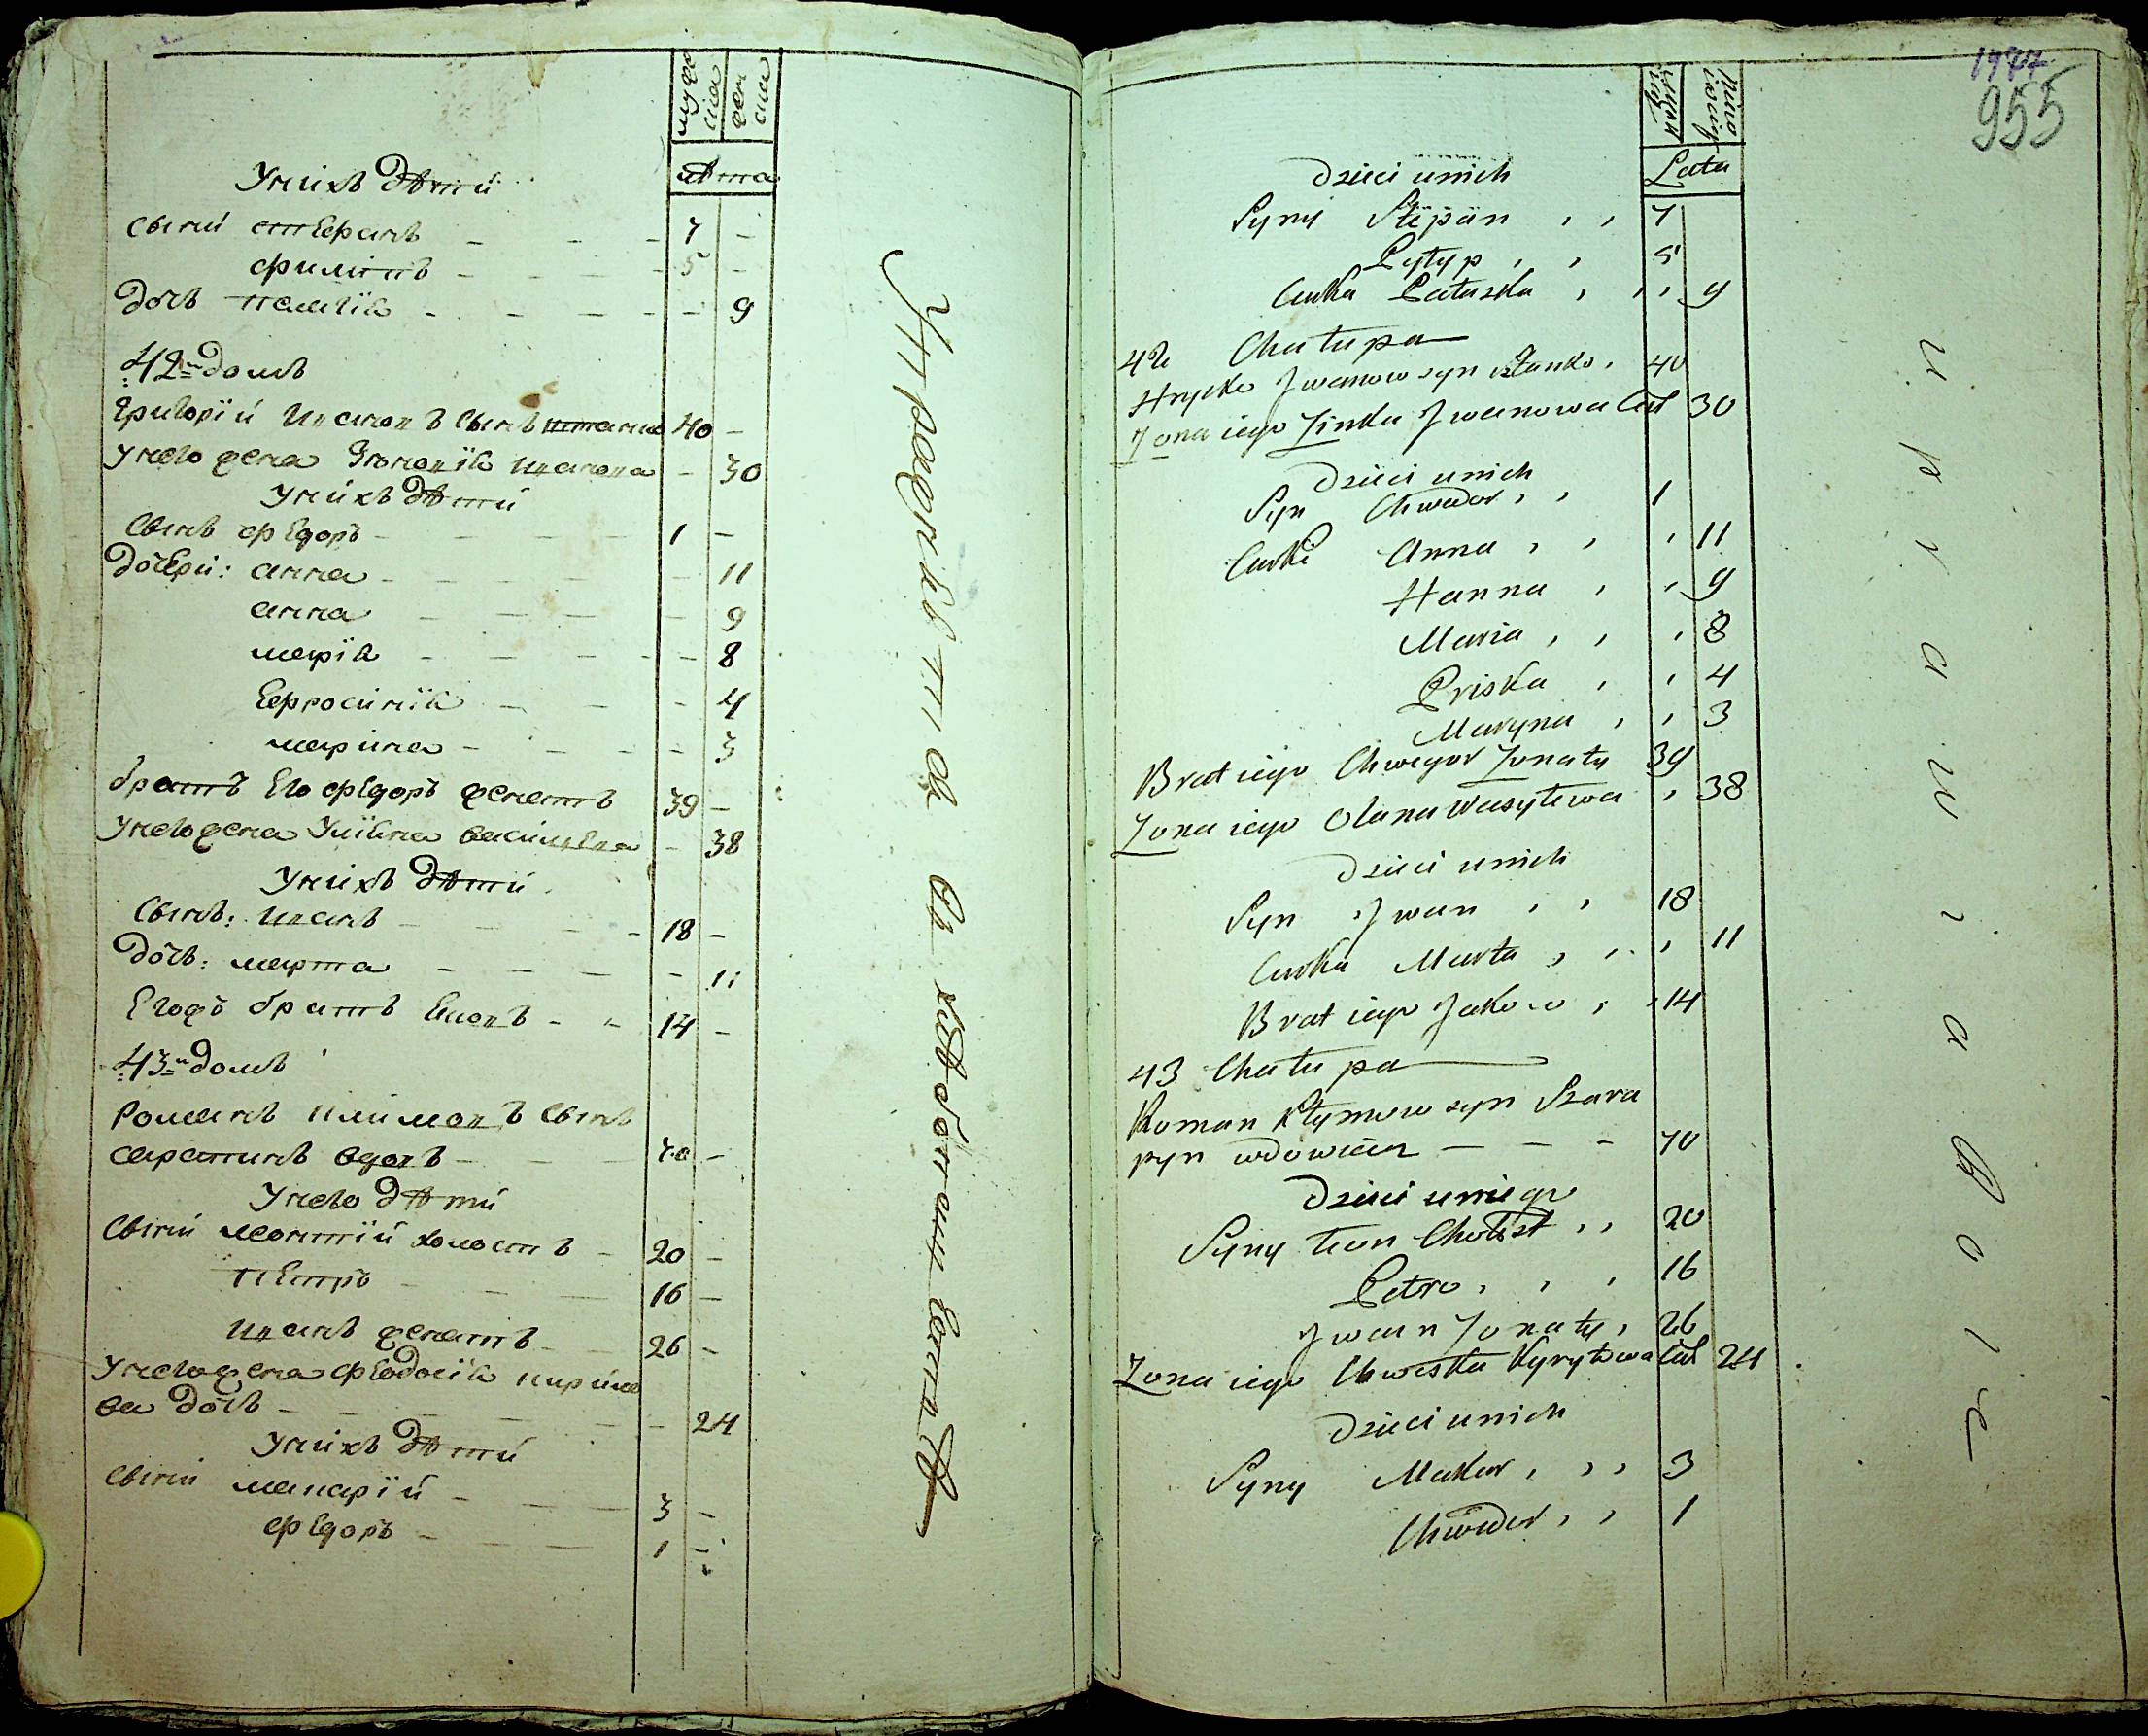 мужеска
женска
лѣта
У нихъ дѣти
Сыни степанъ - - - 7 -
филипъ - - - 5 -
дочъ пелагія - - - - 9
42й домъ
григорій ивановъ сынъ штанко 40 -
У него жена Зѣновія иванова - 30
У нихъ дѣти
Сынъ федоръ - - - 1 -
дочери: анна - - - 11
анна - - - 9
марія - - - 8
Ефросинія - - - 4
марина - - - 3
братъ Его федоръ женатъ 39 -
У него жена Уліяна василева - 38
У нихъ дѣти
Сынъ: иванъ - - - 18 -
дочъ: марта - - - - 11
Егожъ братъ Яковъ - - 14 -
43й домъ
Романъ климовъ Сынъ
сарапинъ вдовъ - - 70 -
У него дѣти
Сыни леонтій холостъ - 20 -
петръ - - - 16 -
иванъ женатъ - - 26 -
У него жена феодосія кирило
ва дочъ - - - - 24
У нихъ дѣти
Сыни макарій - - 3 -
федоръ - - - 1 -
Упражняются въ хлѣбопашествѣ
1977
955
Lata
Dzieci u nich
Syny Stepan , , 7
Pylyp , , 5
Curka Palaszka , , , 9
42 Chałupa
Hrycko Iwanow syn Sztanko , 40
Zona iego Zinka Iwanowa Cur 30
Dzieci u nich
Syn Chwedor , , 1
Curki Anna , , , 11
Hanna , , 9
Maria , , , 8
Priska , , 4
Maryna , , 3
Brat iego Chwedor Zonaty 39
Zona iego Olana Wasylewa , 38
Dzieci u nich
Syn Iwan , , 18
Curka Marta , , , 11
Brat iego Jakow , , 14
43 Chałupa
Roman Kłymow syn Szara
pyn wdowiec - - - 70
Dzieci u niego
Syny Leon Chołost , , 20
Petro , , , 16
Iwan Zonaty , 26
Zona iego Chweska Kyryłowa Cur 24
Dzieci u nich
Syny Makar , , , 3
Chwedor , , 1
uprawia Rolie